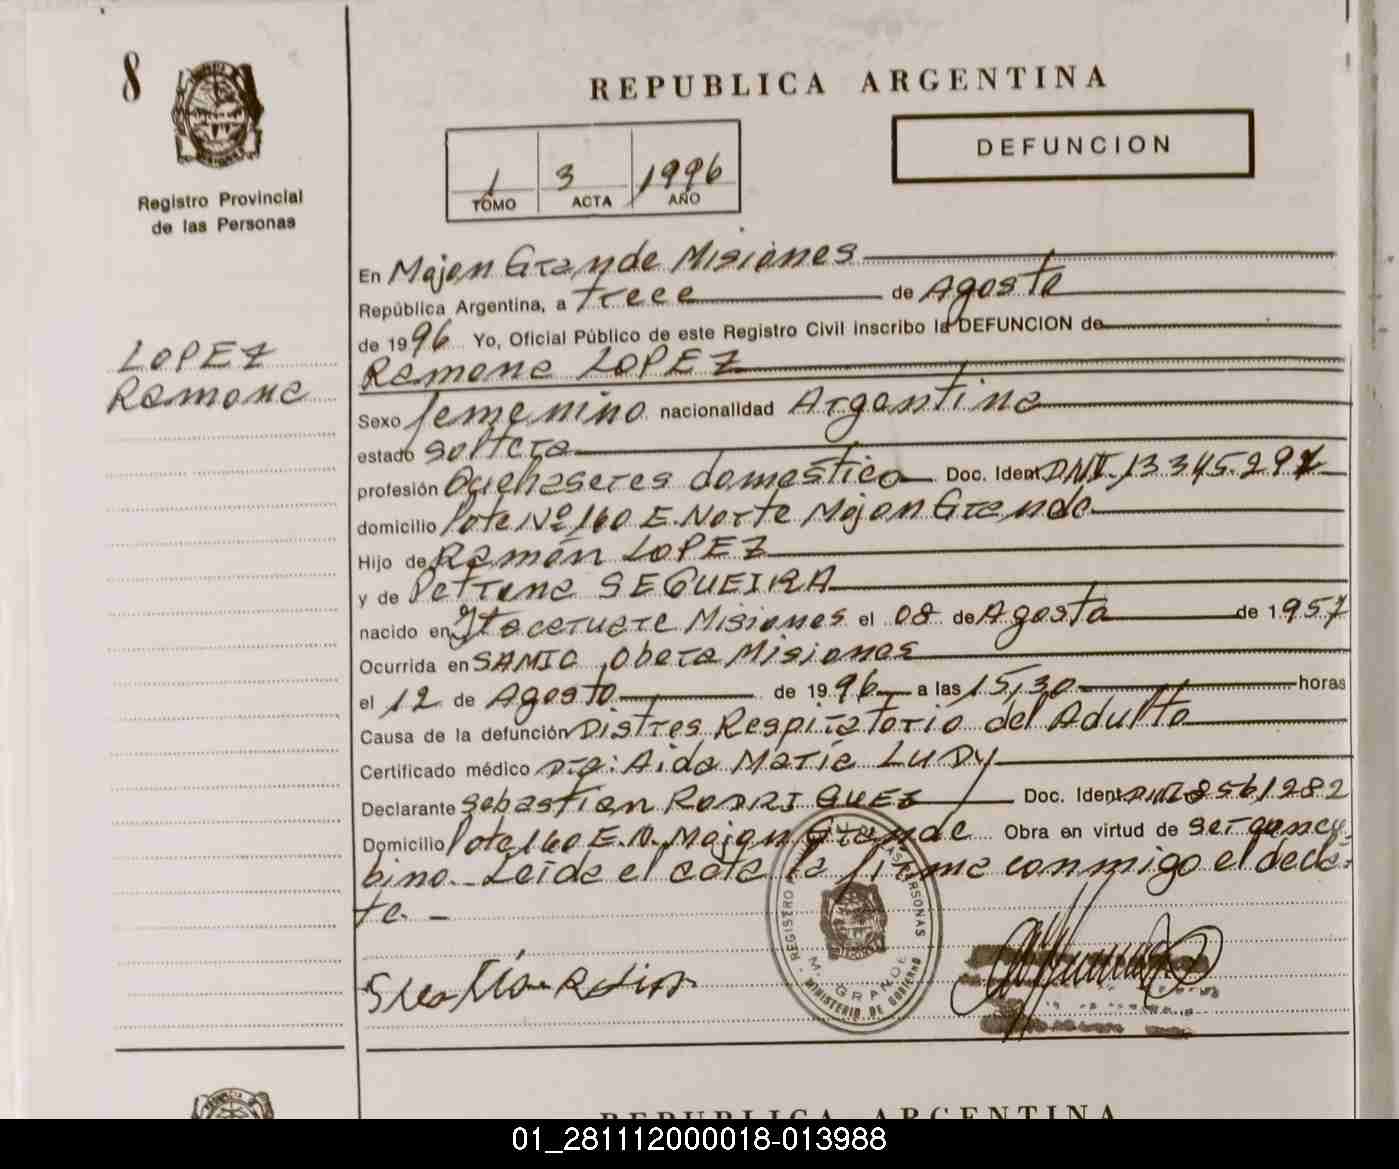 8
REPUBLICA ARGENTINA
DEFUNCION
1 3 1996
TOMO ACTA AÑO
Registro Provincial
de las Personas
LOPEZ
Ramona
En Mojon Grande Misiones
República Argentina, a trece de Agosto
de 1996 Yo, Oficial Público de este Registro Civil inscribo la DEFUNCION de
Ramona LOPEZ
Sexo femenino nacionalidad Argentina
estado soltera
profesión Quehaseres domestico Doc. Ident DNI. 13.345.297
domicilio lote Nº 160 E. Norte Mojon Grande
Hijo de Ramón LOPEZ
y de Petrona SEGUEIRA
nacido en Itacaruare Misiones el 08 de Agosto de 1957
Ocurrida en SAMIC, Obera Misiones
el 12 de Agosto de 1996 a las 15,30 horas
Causa de la defunción Distres Respiratorio del Adulto
Certificado médico Dra: Aida María LUDY
Declarante Sebastian RODRIGUEZ Doc. Ident DNI 8561282
Domicilio lote 160 E.N. Mojon Grande Obra en virtud de ser
bino. Leida el acta la firma conmigo el decla-
te. -
REGISTRO PERSONAS
M. GRANDE
MINISTERIO DE GOBIERNO
REPUBLICA ARGENTINA
01_281112000018-013988